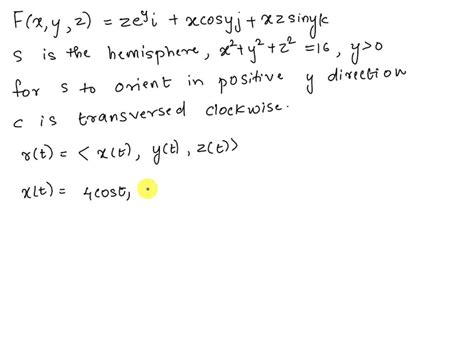 F(x, y, z) = ze^y i + x cosy j + xz siny k
S is the hemisphere, x² + y² + z² = 16, y>0
for s to orient in positive y direction
c is transversed clockwise.
r(t) = < x(t), y(t), z(t)>
x(t) = 4cost,